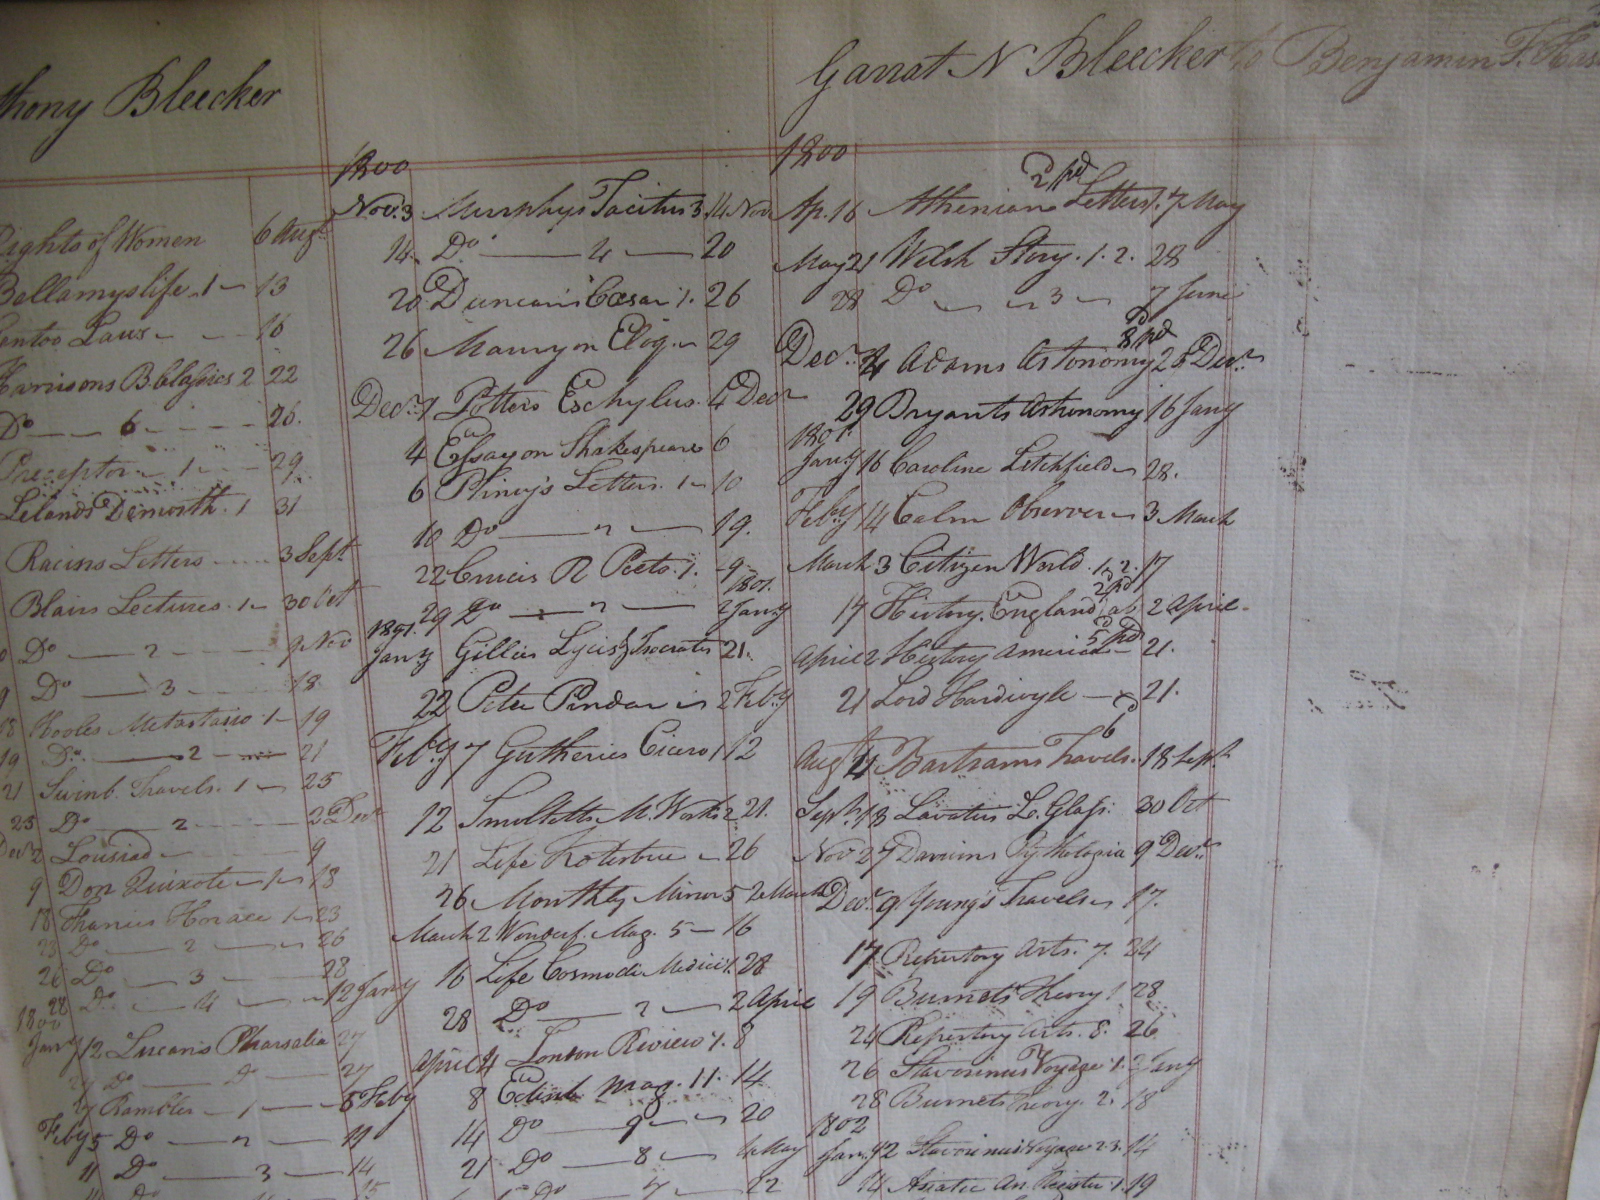 thony Bleecker
Rights of Women 6 Augt
Bellamys life 1 13
Gentoo Laws 16
Harrisons B Classics 2 22
Do 6 26
Preceptor 1 29
Lelands Demosth. 1 31
Racines Letters 3 Sept
Blairs Lectures. 1 30 Oct
Do 2 9 Nov
9 Do 3 18
18 Hooles Metastasio 1 19
19 Do 2 21
21 Swinb. Travels. 1 25
25 Do 2 2 Decr
Decr 2 Lousiad 9
9 Don Quixote 1 18
18 Francis Horace 1 23
23 Do 2 26
26 Do 3 28
28 Do 4 12 Jany
1800
Jany 12 Lucans Pharsalia 27
27 Do Do 27
27 Rambler 1 5 Feby
Feby 5 Do 2 11
11 Do 3 14
1800
Nov. 3 Murphys Tacitus 3. 14 Nov
14 Do 4 20
20 Duncan's Cæsar 1. 26
26 Maury on Eloq. 29
Decr 1 Potters Eschylus 4 Decr
4 Essay on Shakespeare 6
6 Pliny's Letters. 1 10
10 Do 2 19.
22 Do 2 2 Jany
1801.
Jany Gillies Lysis & Isocrates 21.
22 Peter Pindar 2 Feby
Feby 7 Gutheries Cicero 1 12
12 Smolletts M. Works 2 21.
21 Life Kotzebue 26
26 Monthly Mirror 5 2 March
March 2 Wonderf. Mag. 5 16
16 Life Cosmo di Medici 1. 28
28 Do 2 2 April
April 4 London Review 1. 8
8 Edinb Mag. 11. 14
14 Do 9 20
21 Do 8 4 May
Do 7 22
Garrat N Bleecker to Benjamin F. Has
1800
Ap. 16 Athenian Letters 1. 7 May
May 21 Welsh Story. 1. 2. 28
28 Do 3 7 June
Decr 4 Adams Astonomy 28 Decr
29 Bryants Astronomy 16 Jany
1801.
Jany 16 Caroline Litchfield 28.
Feby 14 Calm Observer 3 March
March 3 Citizen World. 1. 2. 17
17 History. England 2 April
April 2 History America 21.
21 Lord Hardwyk 21.
Augt 4 Bartrams Travels. 18 Sept
Sept. 18 Lavaters L. Glass. 30 Oct
Nov 27 Darwins Phytologia 9 Decr
Decr 9 Young's Travels 17.
17 Repertory Arts. 7. 24
19 Burnets Theory 1 28
24 Repertory Arts. 8. 26
26 Stavorinus Voyage 1. 2 Jany
28 Burnets Theory. 2. 18
1802
Jany 2 Stavorinus Voyage 2 3. 14
14 Asiatic An. Register 1. 19